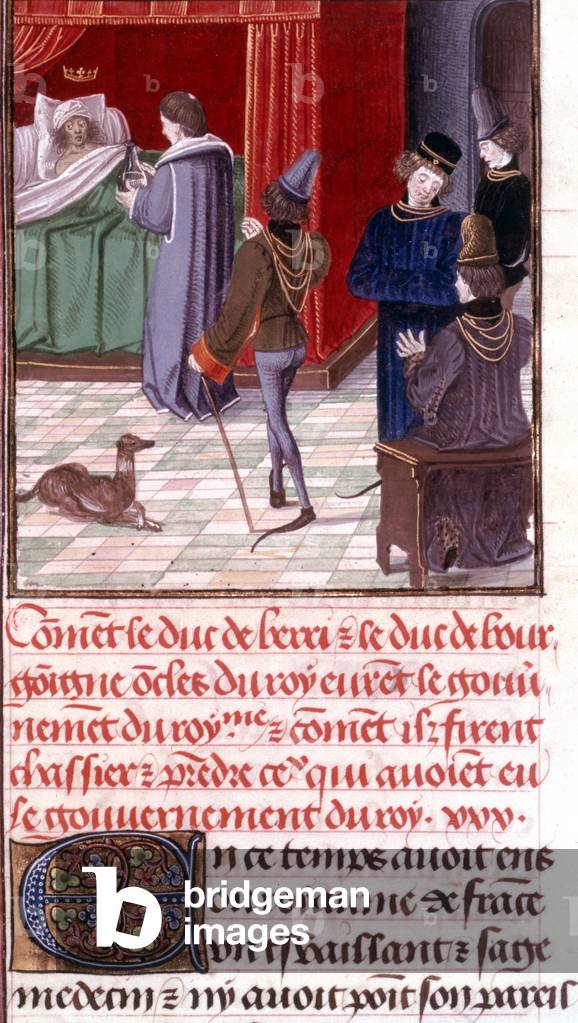 Com̄et le duc de berri ⁊ le duc de bour
goingne ōcles du roy eurēt le gouū
nemēt du roy.me ⁊ com̄et ilz firent
chassier ⁊ prēdre ceˣ qui auoiēt eu
le gouuernement du roy. xxx.
En ce temps auoit ens
france
vaillant ⁊ sage
medecin ⁊ ny auoit poīt son pareil
b bridgeman
images